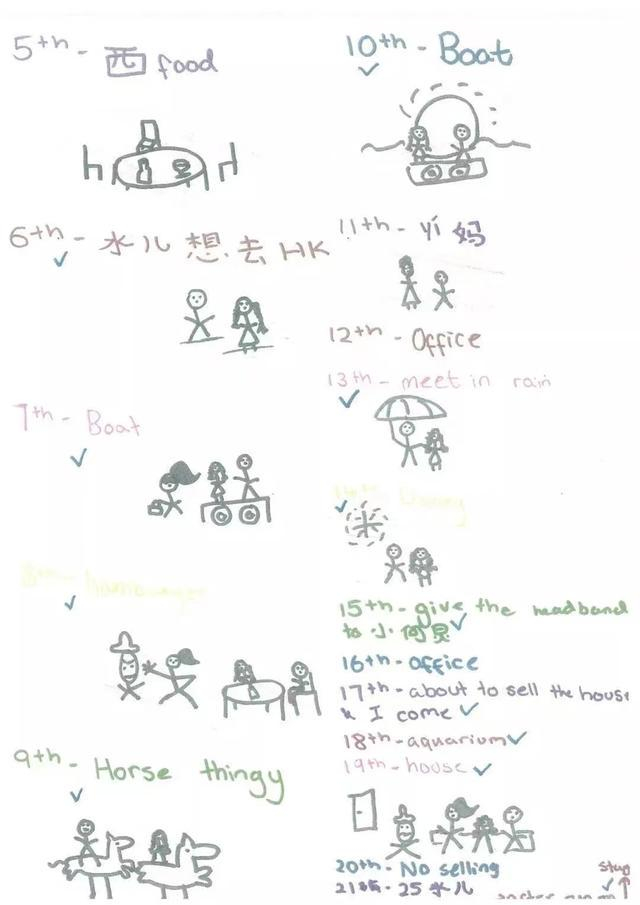 5th - 西 food
6th - 水儿想去 HK
7th - Boat
8th - hamburger
9th - Horse thingy
10th - Boat
11th - yí 妈
12th - Office
13th - meet in rain
14th -
15th - give the headband
to 小何炅
16th - office
17th - about to sell the house
& I come
18th - aquarium
19th - house
20th - No selling
21场 - 25 水儿